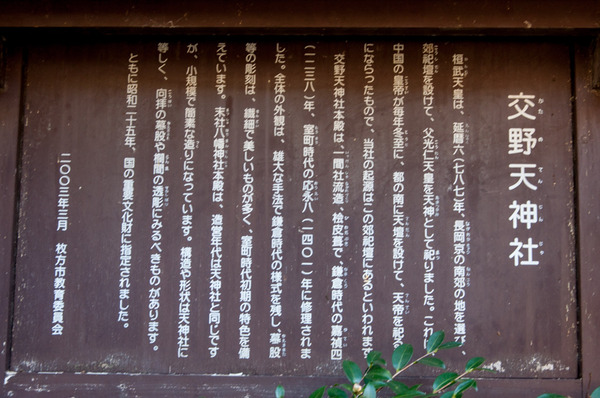 交野天神社
桓武天皇は、延暦六(七八七)年、長岡京の南郊の地を選び、
郊祀壇を設けて、父光仁天皇を天神として祀りました。これ
中国の皇帝が毎年冬至に、都の南に天壇を設けて、天帝を祀る
にならったもので、当社の起源はこの郊祀壇にあるといわれます。
交野天神社本殿は、一間社流造、桧皮葺で、鎌倉時代の嘉禎四
(一二三八)年、室町時代の応永八(一四〇一)年に修理されま
した。全体の外観は、雄大な手法で鎌倉時代の様式を残し、蟇股
等の彫刻は、繊細で美しいものが多く、室町時代初期の特色を備
えています。末社八幡神社本殿は、造営年代は天神社と同じです
が、小規模で簡素な造りになっています。構造や形状は天神社に
等しく、向拝の蟇股や欄間の透彫にみるべきものがあります。
ともに昭和二十五年、国の重要文化財に指定されました。
二〇〇三年三月 枚方市教育委員会